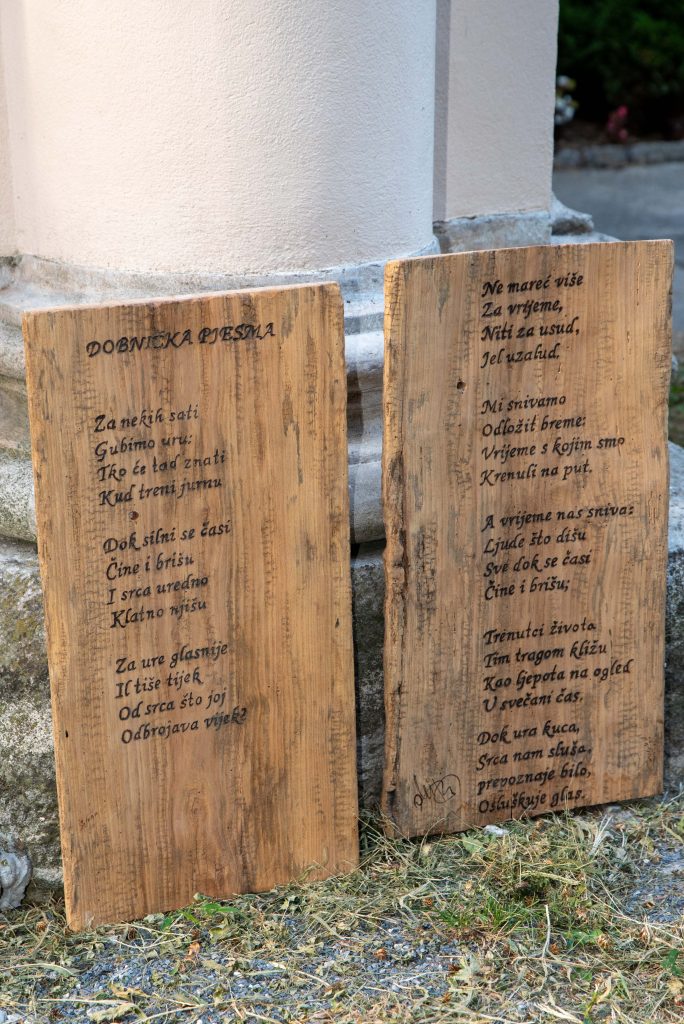 DOBNIČKA PJESMA
Za nekih sati
Gubimo uru:
Tko će tad znati
Kud treni jurnu
Dok silni se časi
Čine i brišu
I srca uredno
Klatno njišu
Za ure glasnije
Il tiše tijek
Od srca što joj
Odbrojava vijek?
Ne mareć više
Za vrijeme,
Niti za usud,
Jel uzalud,
Mi snivamo
Odložit breme:
Vrijeme s kojim smo
Krenuli na put.
A vrijeme nas sniva:
Ljude što dišu
Sve dok se časi
Čine i brišu;
Trenutci života
Tim tragom kližu
Kao ljepota na ogled
U svečani čas.
Dok ura kuca,
Srca nam sluša,
prepoznaje bilo,
Osluškuje glas.